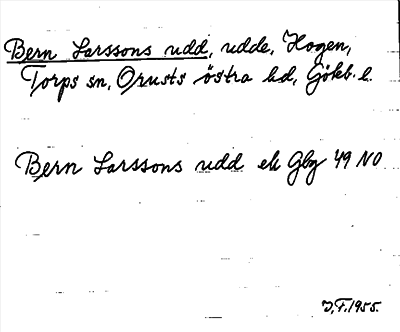 Bern Larssons udd, udde, Hogen,
Torps sn, Orusts östra hd, Gökb. l.
Bern Larssons udd ek Gbg 49 NO
J.F. 1955.